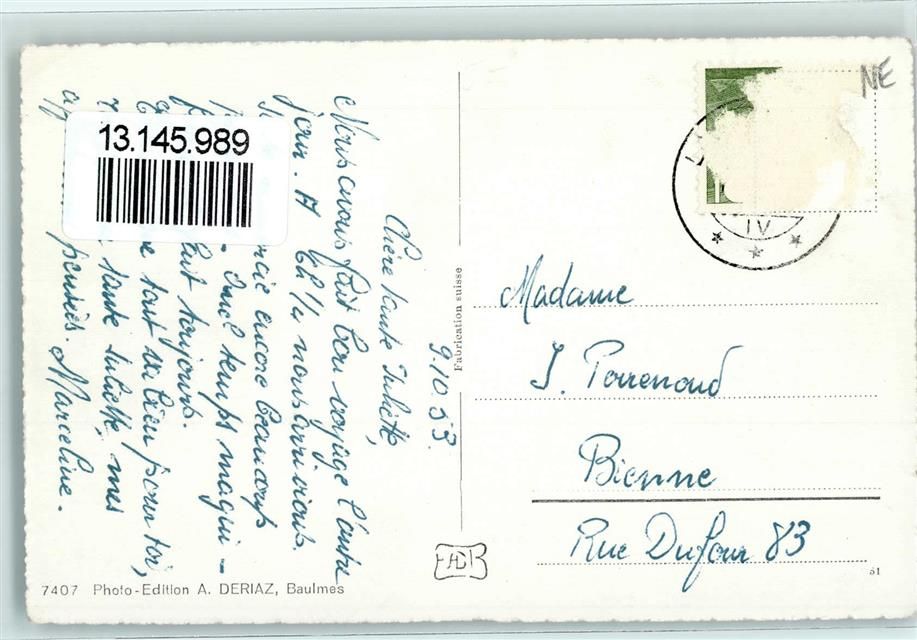 9.10.53.
Chère tante Juliette,
Nous avons fait bon voyage l'autre
jour. A 6h ¼ nous arrivions.
encore beaucoup
Quel temps magni-
toujours.
tout ira bien pour toi,
tante Juliette, mes
pensées. Marceline.
13.145.989
7407 Photo-Edition A. DERIAZ, Baulmes
Fabrication suisse
NE
IV
Madame
J. Perrenoud
Bienne
Rue Dufour 83
51